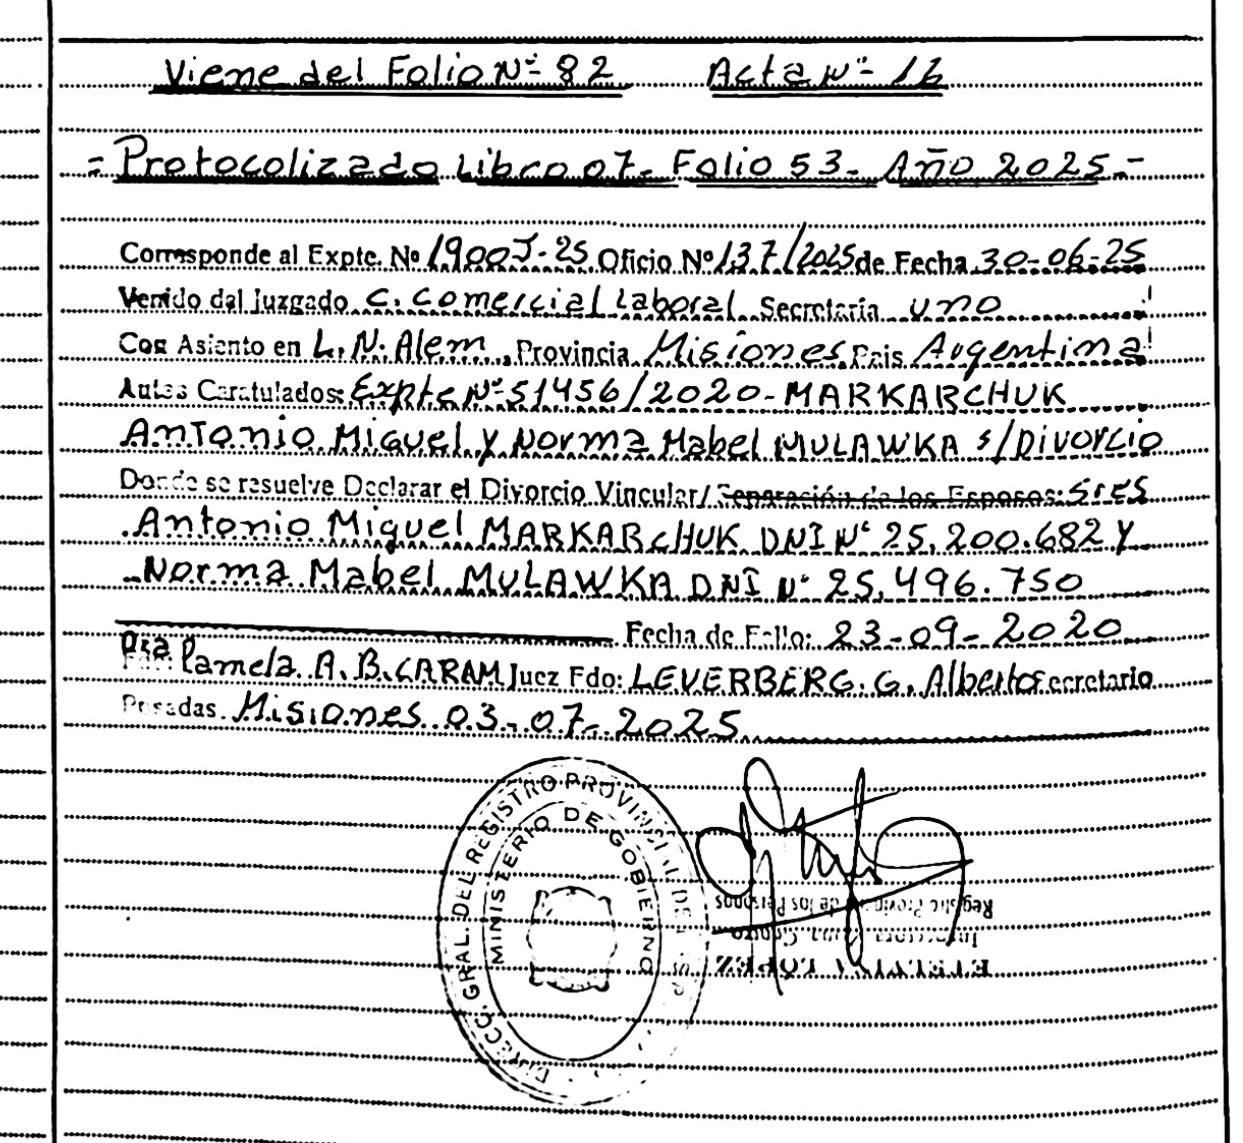 Viene del Folio Nº 82 Acta Nº 16
= Protocolizado Libro 07- Folio 53- Año 2025.-
Corresponde al Expte. No 1900J-25 Oficio Nº 137/2025 de Fecha 30-06-25
Venido dal Juzgado C. Comercial Laboral Secretaria uno
Con Asiento en L.N. Alem, Provincia Misiones, Pais Argentina
Autos Caratulados: Expte Nº 51456/2020- MARKARCHUK
Antonio Miguel y Norma Mabel MULAWKA s/Divorcio
Donde se resuelve Declarar el Divorcio Vincular/ Separación de los Esposos: Sres
Antonio Miguel MARKARCHUK DNI Nº 25.200.682 Y
Norma Mabel MULAWKA DNI Nº 25.496.750
Fecha de Fallo: 23-09-2020
Dra Pamela A.B. CARAM Juez Fdo: LEVERBERG. G. Alberto Secretario
Posadas. Misiones 03-07-2025
DIRECC. GRAL. DEL REGISTRO PROVINCIAL DE LAS P
MINISTERIO DE GOBIERNO
LOPEZ
Zona Centro
Registro Provincial de las Personas